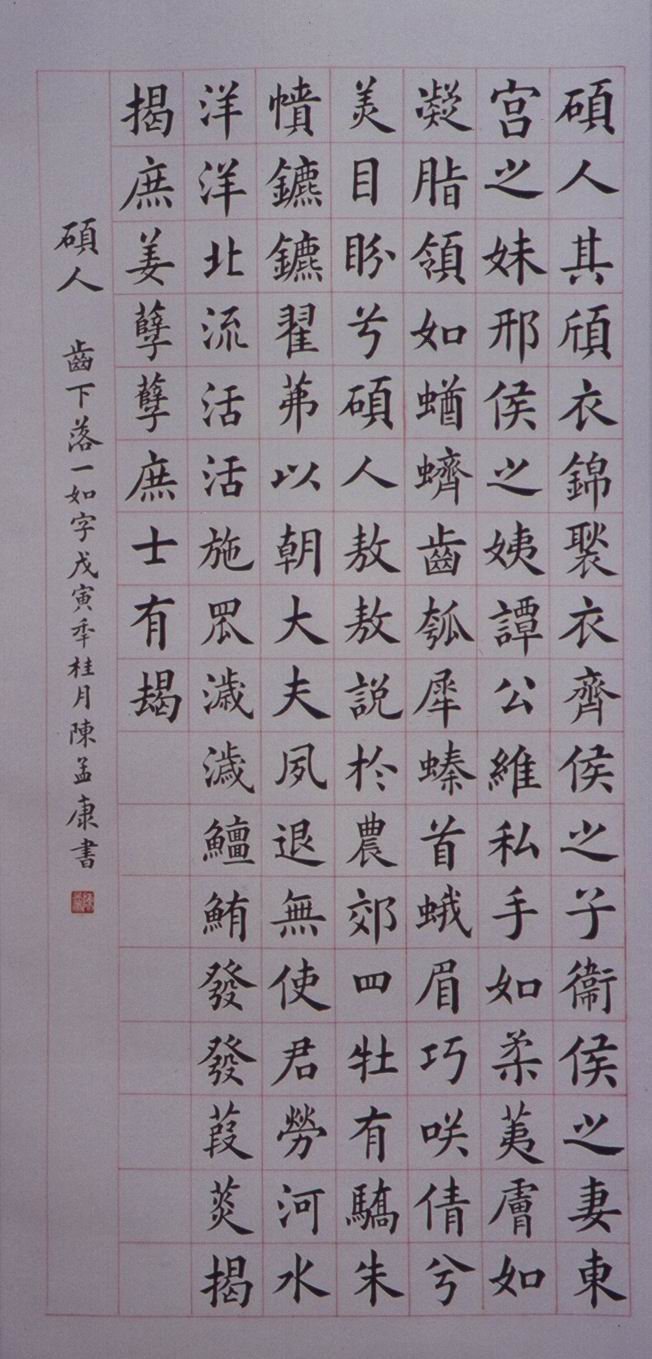 碩人其頎衣錦褧衣齊侯之子衞侯之妻東
宮之妹邢侯之姨譚公維私手如柔荑膚如
凝脂領如蝤蠐齒瓠犀螓首蛾眉巧咲倩兮
美目盼兮碩人敖敖說於農郊四牡有驕朱
幩鑣鑣翟茀以朝大夫夙退無使君勞河水
洋洋北流活活施罛濊濊鱣鮪發發葭菼揭
揭庶姜孽孽庶士有朅
碩人 齒下落一如字戊寅年桂月陳孟康書